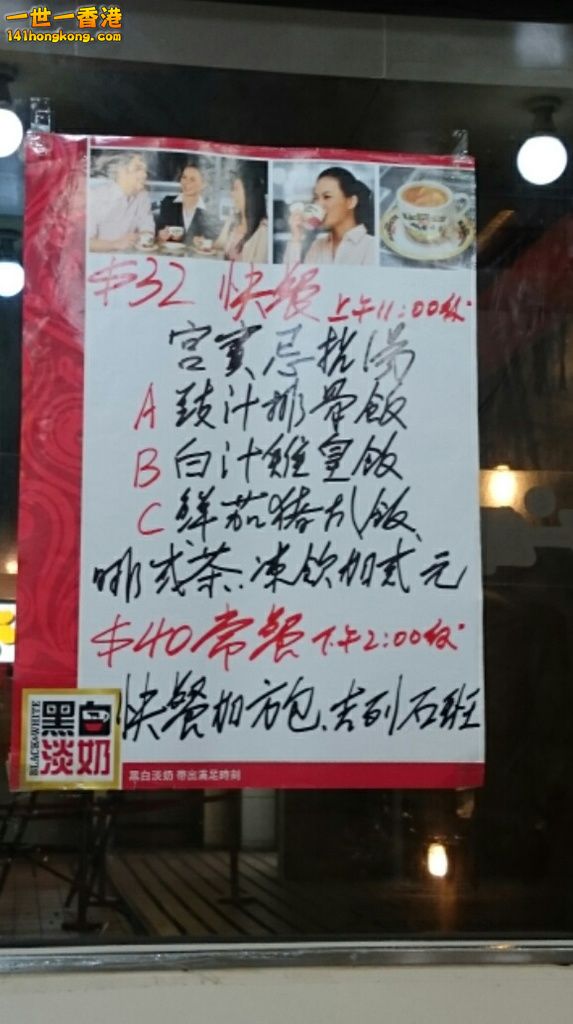 一世一香港
141hongkong.com
$32 快餐 上午11:00後
宮賓忌批湯
A 豉汁排骨飯
B 白汁雞皇飯
C 鮮茄豬扒飯
啡或茶.凍飲加弍元
$40常餐 下午2:00後
快餐加方包、吉列石班
BLACK&WHITE
黑白
淡奶
黑白淡奶 帶出滿足時刻